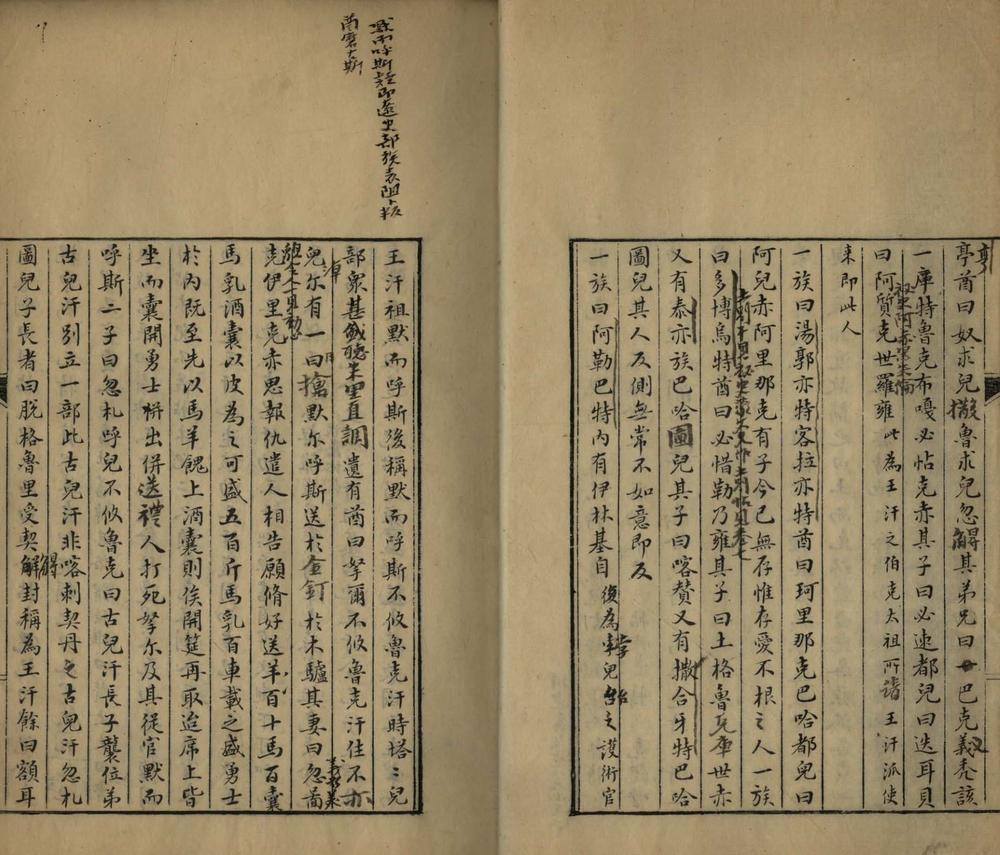 亭酋曰奴求兒撒魯求兒忽解其弟兄曰巴克義禿該
一庫特魯克布嘎必帖克赤其子曰必速都兒曰迭耳貝
曰阿質克世羅雍此為王汗之伯克太祖所誘王汗派使
来即此人
一族曰湯郭亦特客拉亦特酋曰珂里那克巴哈都兒曰
阿兒赤阿里那克有子今已無存惟存愛不根之人一族
曰多博烏特酋曰必惜勒乃雍其子曰土格魯兒庫世赤
又有泰亦族巴哈圖兒其子曰喀贊又有撒合牙特巴哈
圖兒其人反側無常不如意即反
一族曰阿勒巴特內有伊林基自後為之護術官
默而呼斯疑即遼史部族表阻卜叛
酋磨古斯
王汗祖默而呼斯後稱默而呼斯不攸魯克汗時塔二兒
部眾甚盛聽朱里真調遣有酋曰拏爾不攸魯克汗住不
兒尔有一曰搶默尔呼斯送於金釘於木驢其妻曰忽啚
克伊里克赤思報仇遣人相告願脩好送羊百十馬百囊
馬乳酒囊以皮為之可盛五百斤馬乳百車載之盛勇士
於內既至先以馬羊餽上酒囊則俟開筵再取迨席上皆
坐而囊開勇士躍出併送禮人打死拏尔及其從官默而
呼斯二子曰忽札呼兒不攸魯克曰古兒汗長子襲位弟
古兒汗別立一部此古兒汗非喀剌契丹之古兒汗忽札
圖兒子長者曰脫格魯里受契解封稱為王汗餘曰額耳